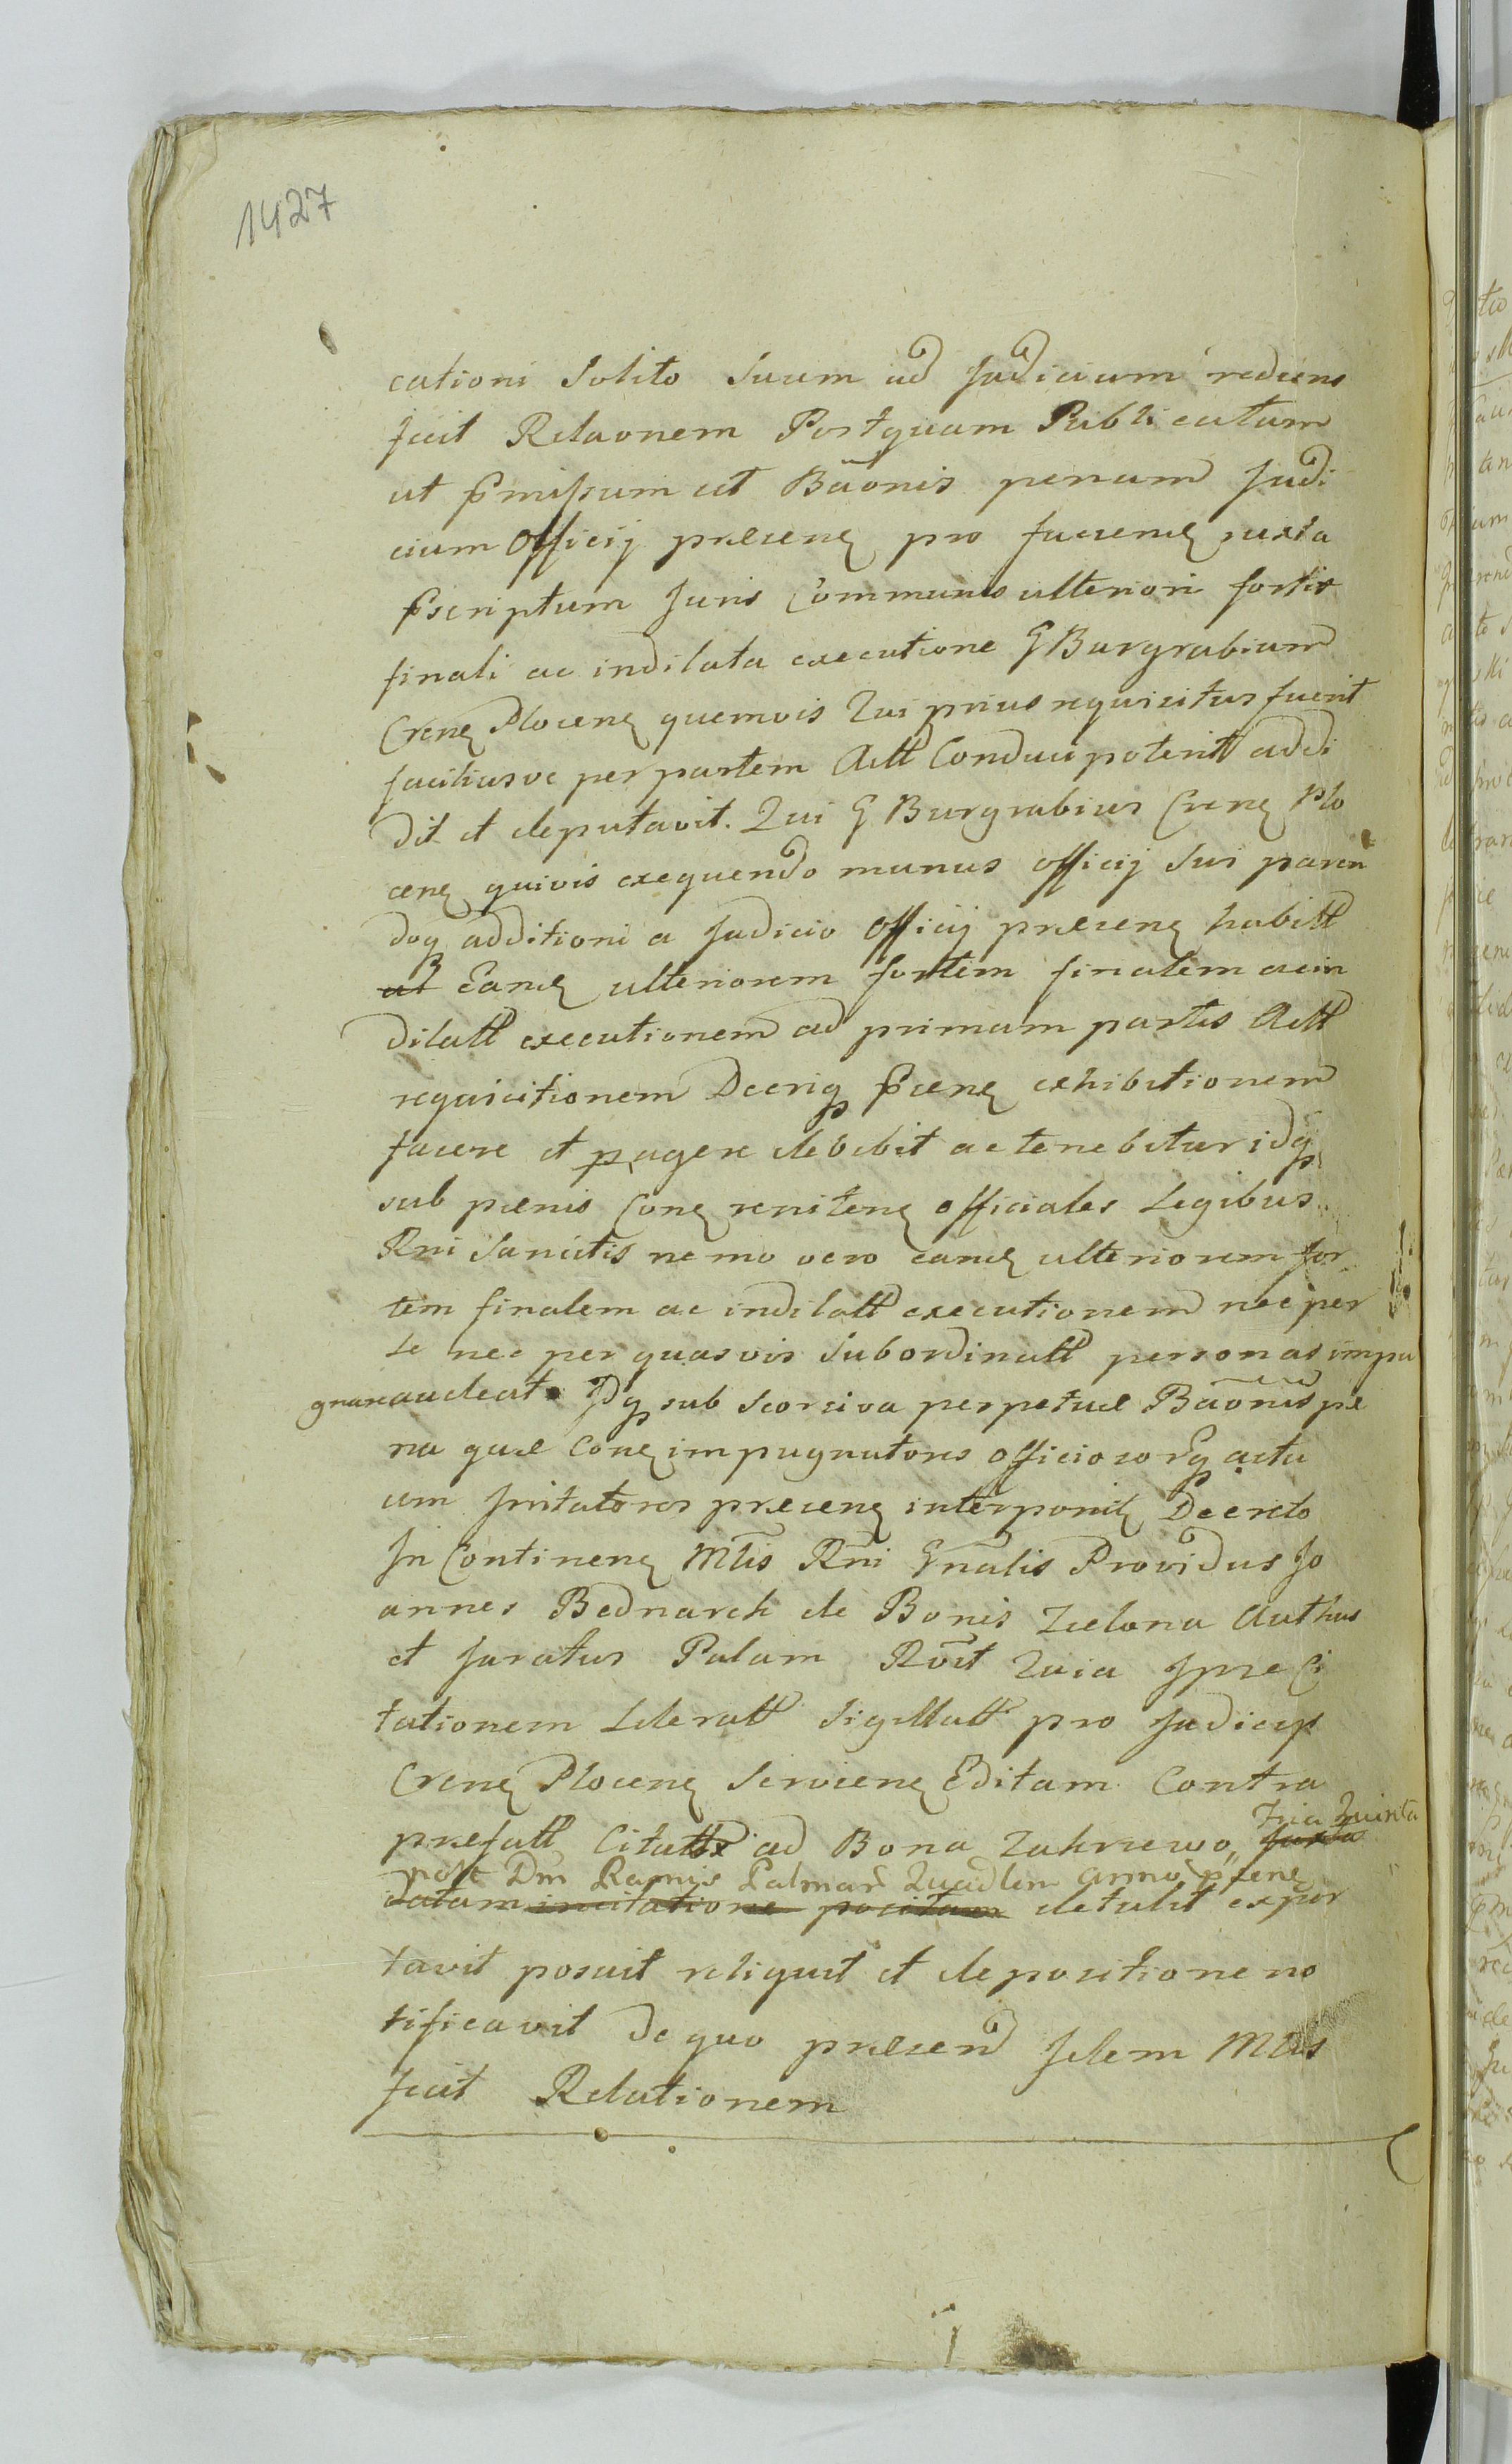 1427
cationi Solito Suum ad Judicium rediens
fecit Relaonem Postquam Publicatam
ut pmissum est Baonis penam Judi
cium Officij presene pro faciene iuxta
pscriptum Juris Communis ulteriori fortis
finali ac indilata executione G Burgrabium
Crene Plocene quemvis Qui prius requisitus fuerit
faciliusve per partem Actt Conduci poterit addi
dit et deputavit. Qui G Burgrabius Crene Plo
cene quivis exequendo munus officij Sui paren
doq additioni a Judicio Officij presene habitt
ut Eande ulteriorem fortem finalem ac in
dilatt executionem ad primam partis Actt
requisitionem Decriq psene exhibitionem
facere et pagere debebit ac tenebitur idq
sub penis Cone renitene officiales Legibus
Rni Sancitis nemo vero eande ulteriorem for
tem finalem ac indilatt executionem nec per
se nec per quasvis Subordinatt personas impu
gnare audeat Idq sub Scorsiva perpetuæ Baonis pæ
na quæ Cone impugnatores officiosorq actu
um Irritatores presene interponit Decreto
In Continene Mtis Rni Gnalis Providus Jo
annes Bednarek de Bonis Zielona Authus
et Juratus Palam Rovit Quia Ipse Ci
tationem Literatt Sigillatt pro Judicijs
Crene Plocene Serviene Editam Contra
prefatt Citatt ad Bona Zakrzewo Fria Quinta
post Dm Ramis Palmar Quadlem anno psene
datam incitatione positam detulit expor
tavit posuit reliquit et de positione no
tificavit De quo presen Idem Mtis
fecit Relationem